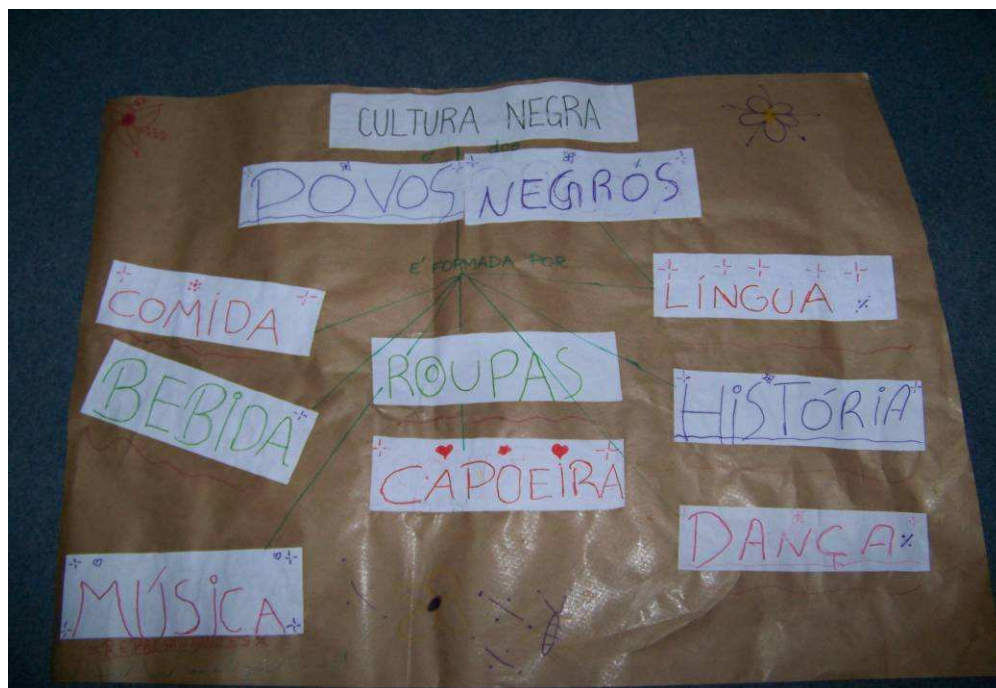 CULTURA NEGRA
dos
POVOS NEGROS
É FORMADA POR
COMIDA
BEBIDA
MÚSICA
ROUPAS
CAPOEIRA
LÍNGUA
HISTÓRIA
DANÇA